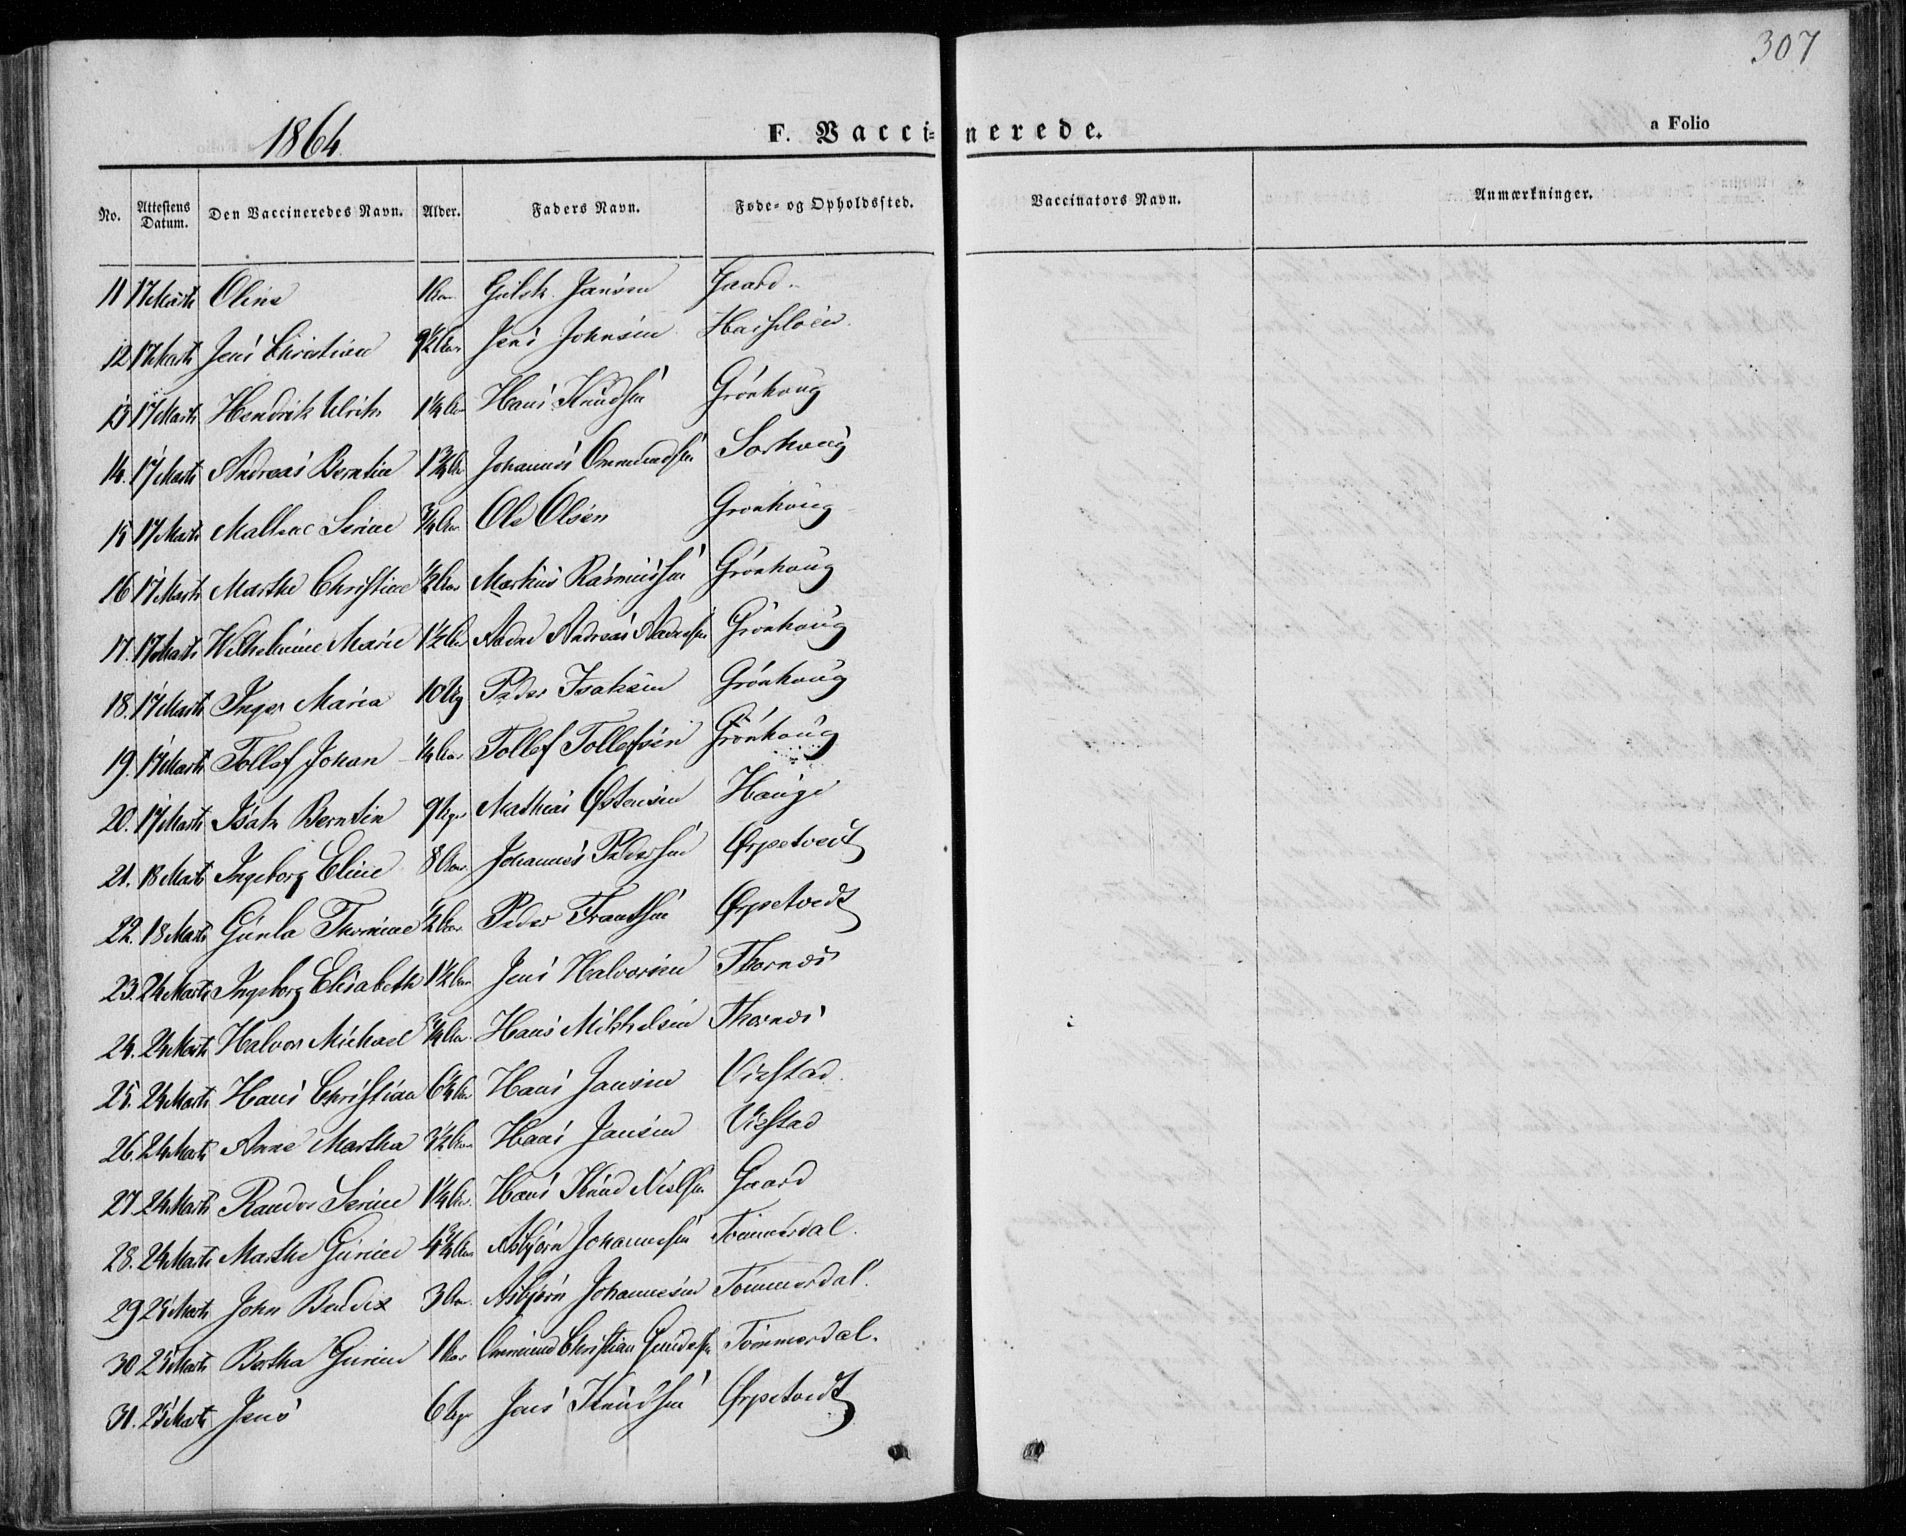 307
1864.
F. Vaccinerede.
a Folio
No. Attestens Datum. Den Vaccineredes Navn. Alder. Faders Navn. Føde- og Opholdssted. Vaccinators Navn. Anmærkninger.
11 17 Marts Oline 1 Aar Jansen Gaard
12 17 Marts Jens Christian 9½ Aar Jens Johnsen
13 17 Marts Hendrik Ulrik 1¼ Aar Hans Knudsen Grönhoug
14. 17 Marts Andreas Berntin 1¾ Aar Johannes Ommundsen Sørhoug
15 17 Marts Malene Serine ¾ Aar Ole Olsen Grønhoug
16 17 Marts Marthe Christine ½ Aar Markus Rasmussen Grönhoug
17. 17 Marts Wilhelmine Marie 1½ Aar Aadne Andreas Aadnesen Grönhoug
18. 17 Marts Inger Maria 10 Ug Peder Isaksen Grönhoug
19. 17 Marts Tollef Johan ¼ Aar Tollef Tollefsen Grönhoug
20. 17 Marts Isak Berntin 9 Uger Mathias Østensen Hauge
21. 18 Marts Ingeborg Eline 8 Aar Johannes Pedersen Ørpetvedt
22. 18 Marts Gunla Thomine ½ Aar Peder Frantsen Ørpetvedt
23. 24 Marts Ingeborg Elisabeth 1½ Aar Jens Halvorsen Thornæs
24. 24 Marts Halvor Michael ¾ Aar Hans Mikkelsen Thornæs
25. 24 Marts Hans Christian 6¼ Aar Hans Jansen Viestad
26. 24 Marts Anne Martha 3½ Aar Hans Jansen Viestad
27. 24 Marts Randor Serine 1¼ Aar Hans Knud Nielsen Gaard
28. 24 Marts Marthe Gurine 4¾ Aar Asbjørn Johannesen Tömmerdal.
29 25 Marts John Bendix 3 Aar Asbjørn Johannesen Tömmerdal.
30 25 Marts Bertha Gurine 1 Aar Ommund Christian Tömmerdal.
31. 25 Marts Jens 6 Uger Jens Knudsen Ørpetvedt